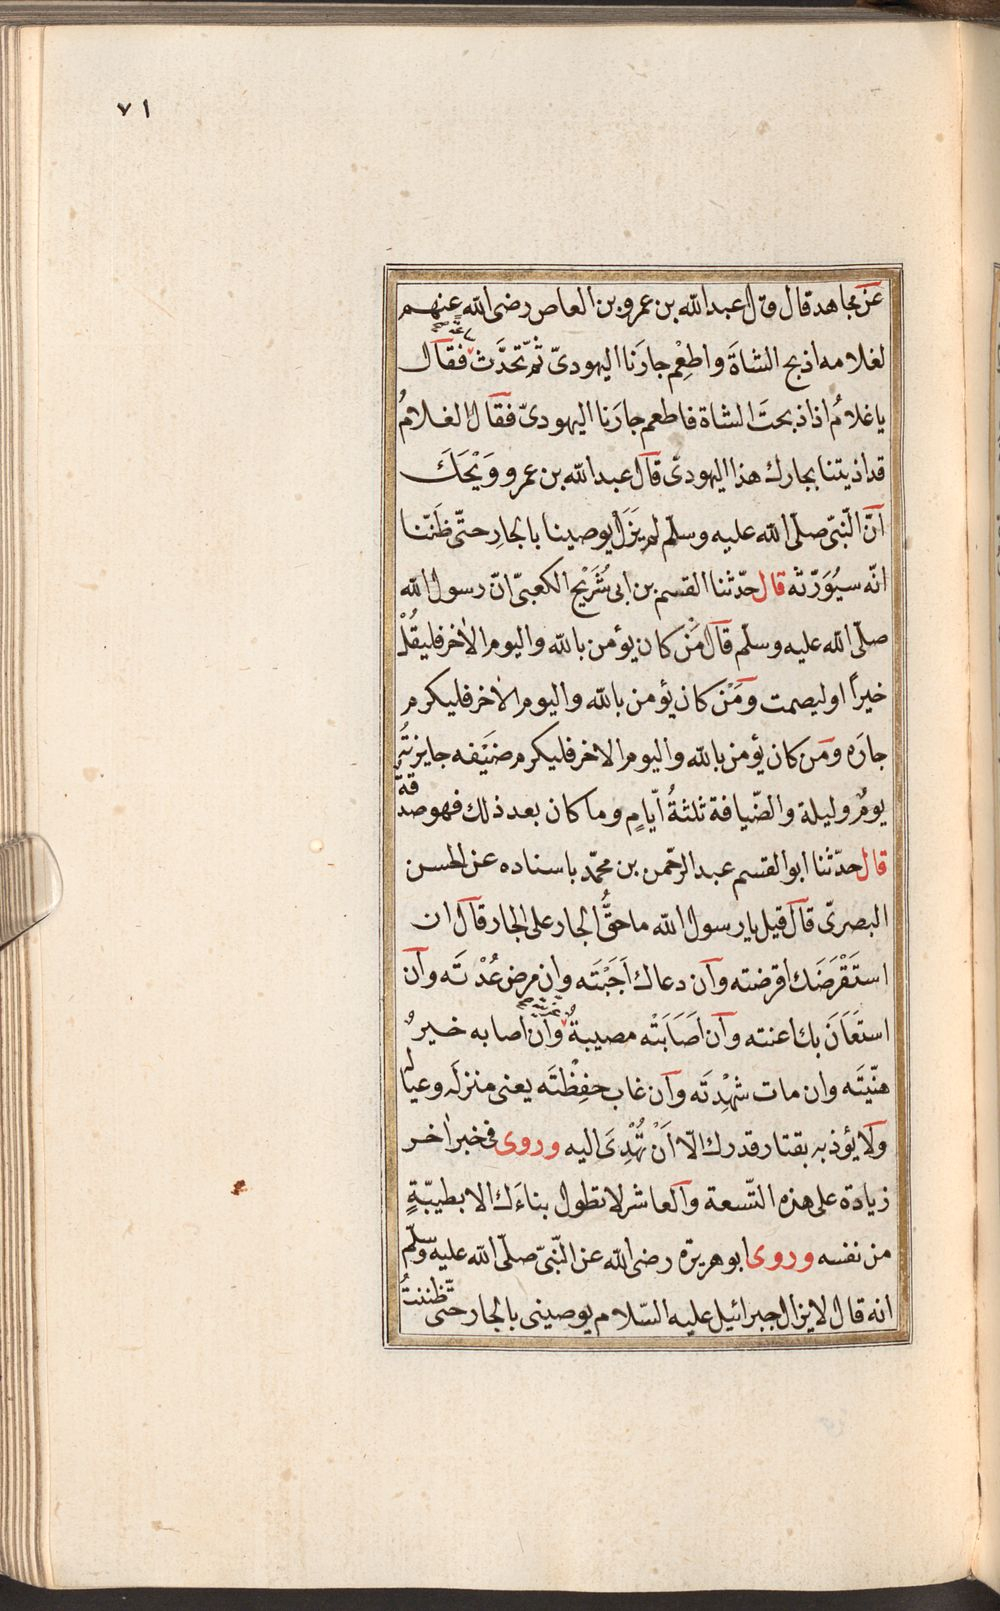 ٧١
عن مجاهد قال قال عبد الله بن عمرو بن العاص رضى الله عنهم
لغلامه اذبح الشاةَ واطعِم جارَنا اليهودىّ ثمّ تحدَّث فقال
يا غلامُ اذا ذبحتَ الشاة فاطعم جارَنا اليهودىّ فقال الغلامُ
قد اذيتنا بجارك هذا اليهودى قال عبد الله بن عمرو وَيْحَكَ
انّ النّبىّ صلّى الله عليه وسلّم لم يَزَل يوصينا بالجارِ حتّى ظَنّنا
انّه سيُوَرّثه قال حدّثنا القسم بن ابى شُرَيْح الكعبىّ انّ رسول الله
صلّى الله عليه وسلّم قال مَنْ كان يؤمن بالله واليوم الاٰخر فليقُلْ
خيراً او ليصمت ومَنْ كان يؤمن بالله واليوم الاٰخر فليكرم
جارَه ومَن كان يؤمن بالله واليوم الاخر فليكرم ضَيْفه جايزتُه
يومٌ وليلة والضّيافة ثلثةُ ايّامٍ وما كان بعد ذلك فهو صدقة
قال حدّثنا ابو القسم عبد الرحّمن بن محمّد باسناده عن الحسن
البصرىّ قال قيل يا رسول الله ما حقُّ الجار على الجار قال ان
استَقْرَضَك اقرضته وان دعاك اَجَبْتَه وان مرض عُدْتَه وان
استعَانَ بك اعنته وان اَصَابَتْه مصيبةٌ وان اصابه خيرٌ
هنّيتَه وان مات شهْدِتَه وان غاب حفِظْتَه يعنى منزله وعياله
ولا يؤذيه بقتار قدرك الّا اَنْ تُهْدِىَ اليه وروى فى خبر اٰخر
زيادة على هذه التّسعة والعاشر لا تطول بناءَك الا بطيبّةٍ
من نفسه وروى ابو هريرة رضى الله عن النّبىّ صلّى الله عليه وسلّم
انه قال لا يزال جبرائيل عليه السّلام يوصينى بالجار حتّى ظننتُ